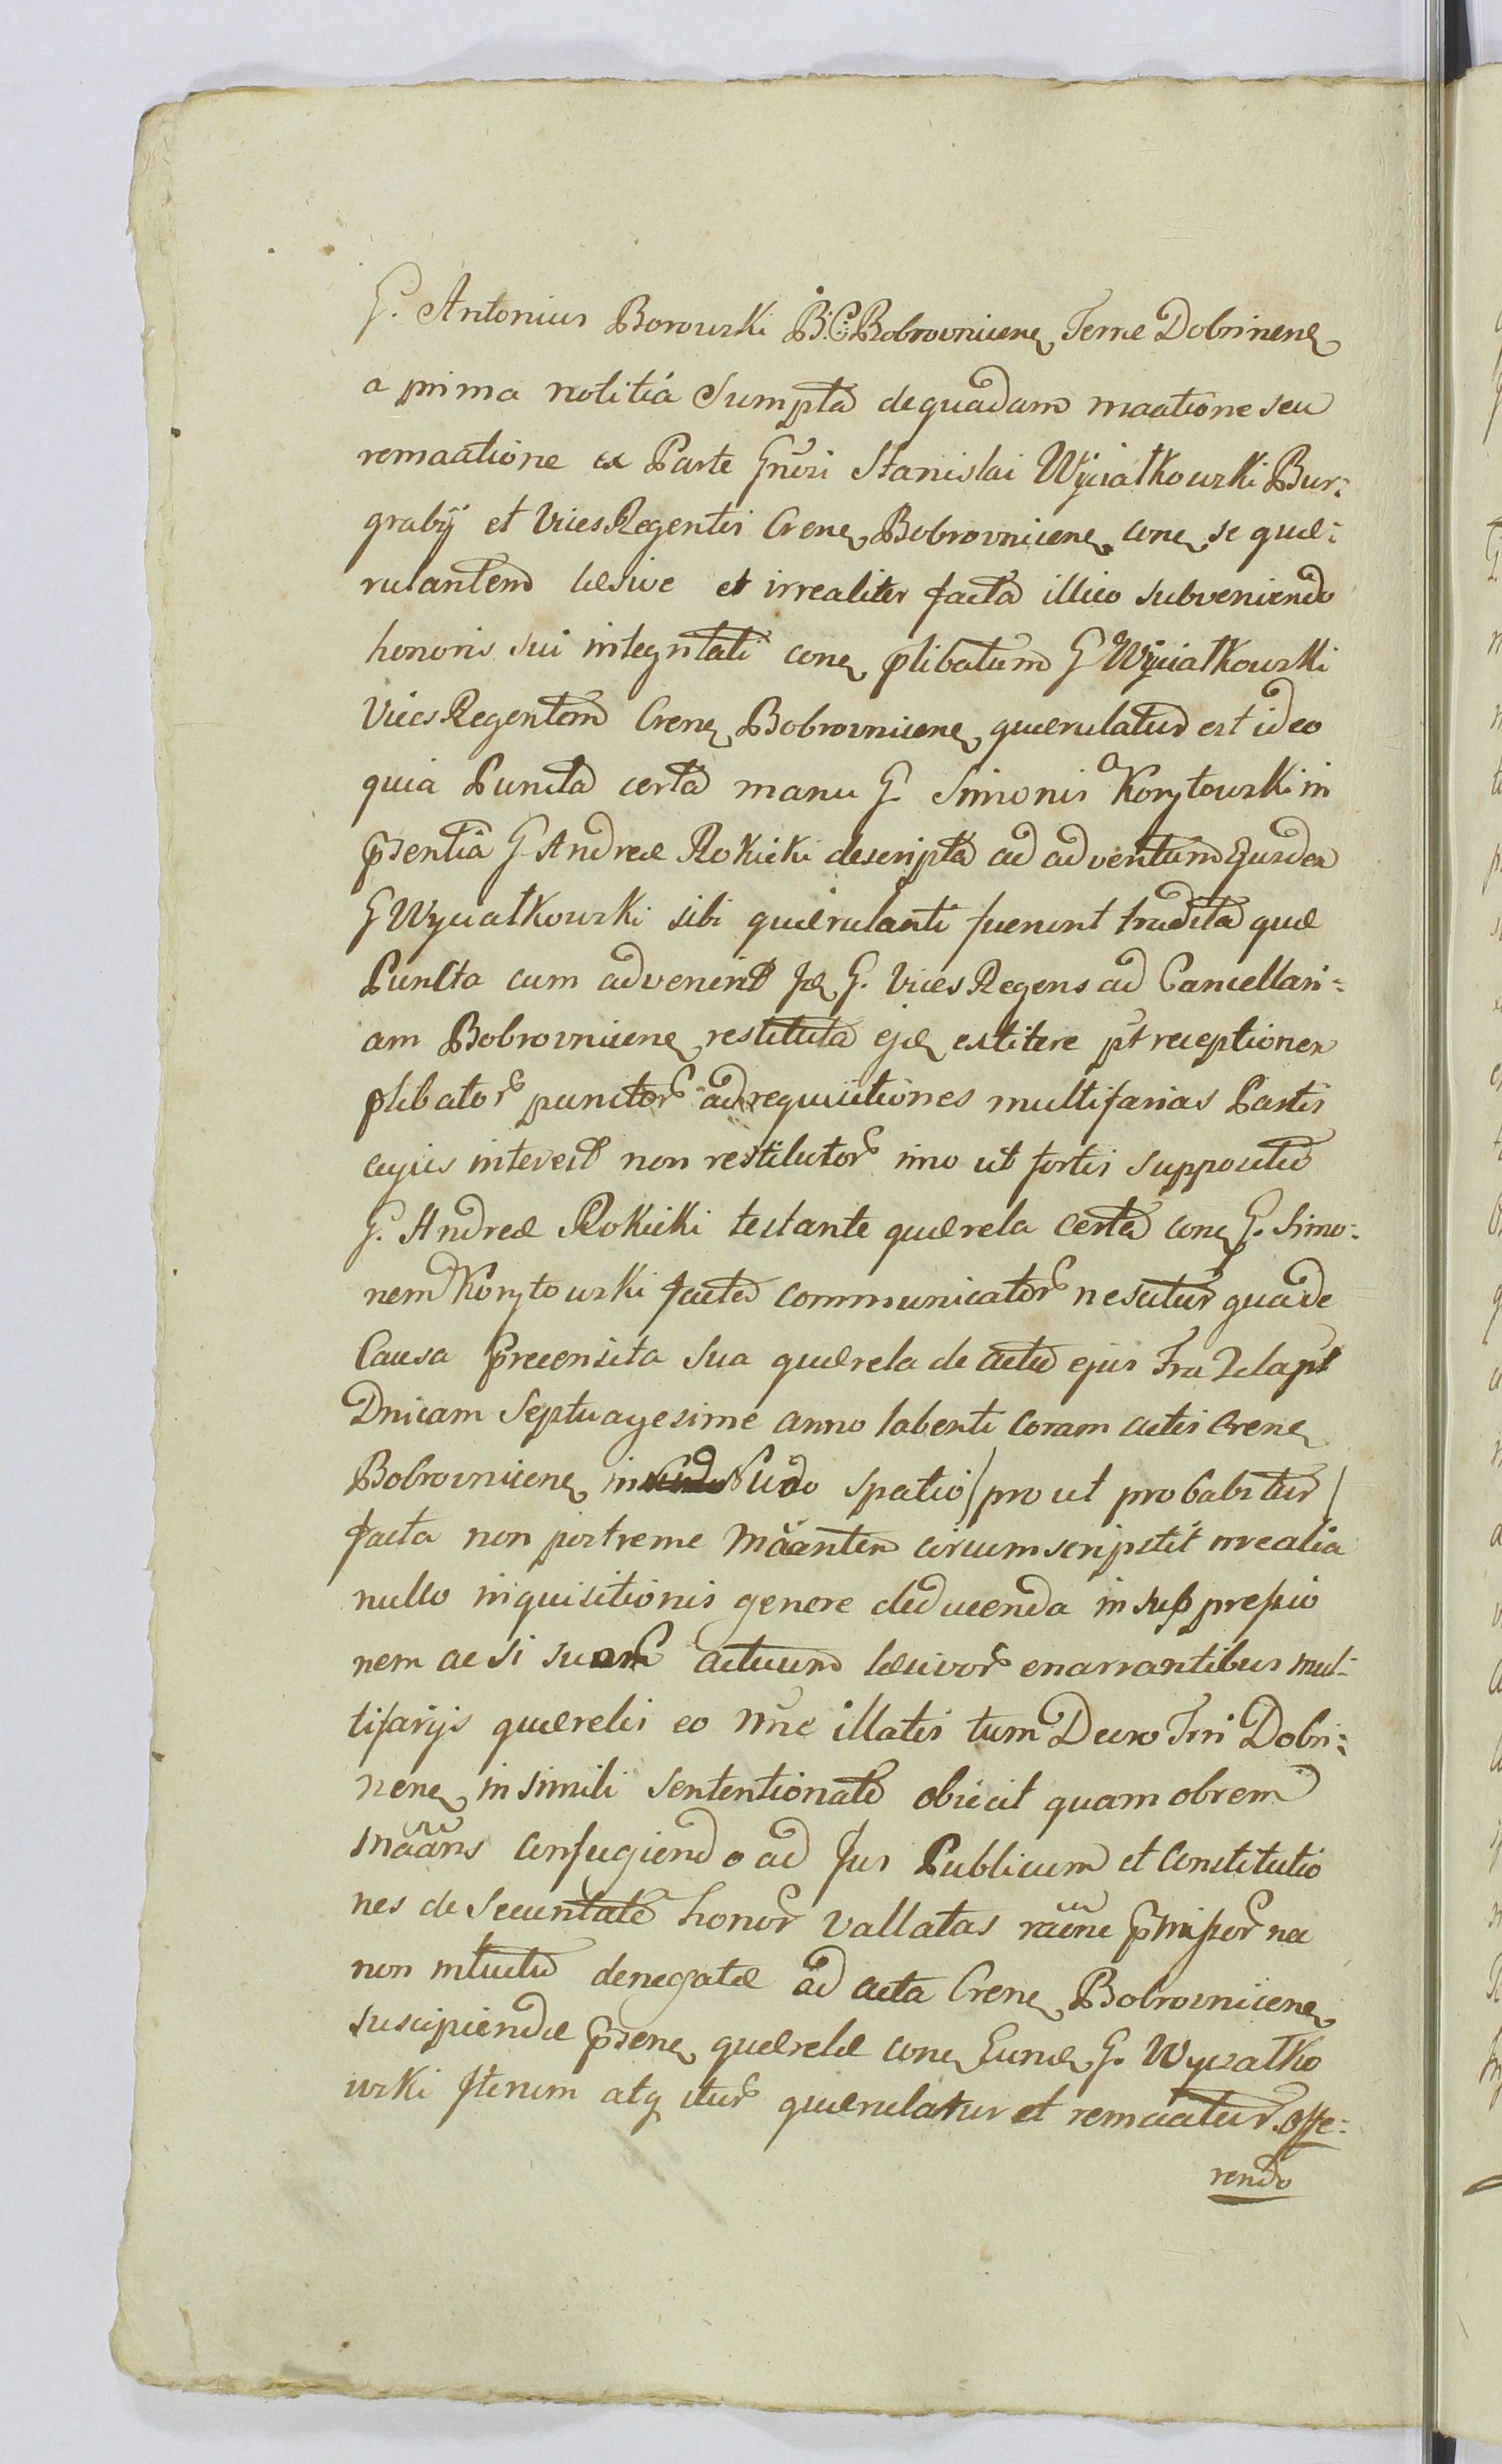 G. Antonius Borowski B: C: Bobrovnicen Terræ Dobrinen
a prima notitiâ Sumpta de quadam maatione seu
remaatione ex Parte Gnosi Stanislai Wyciatkowski Bur:
grabij et Vices Regentis Cren Bobrovnicen con se quæ:
rulantem læsive et irrealiter facta illico subveniendo
honoris sui integritati con plibatum G Wyciatkowski
Vices Regentem Cren Bobrovnicen quærulatur est ideo
quia Puncta certa manu G. Simonis Korytowski in
psentia G Andreæ Rokicki descripta ad adventum Ejusdem
G Wyciatkowski sibi quærulanti fuerint tradita quæ
Puncta cum advenerit G. Vices Regens ad Cancellari:
am Bobrovnicen restituta extitere pt receptionem
plibator punctor ad requisitiones multifarias Partis
cujus interest non restitutor imo ut fortis suppositio
G. Andreæ Rokicki testante quærela certa con G. Simo:
nem Korytowski facta communicator nescitur qua de
Causa precensita sua quærela de actu ejus Fra 2da pt
Dnicam Septuagesime anno labenti coram actis Cren
Bobrovnicen in Nudo spatio (pro ut probabitur)
facta non postreme Maantem circumscripsit irrealia
nullo inquisitionis genere deducenda in suppressio
nem ac si suarum actuum læsivor enarrantibus mul:
tifarijs quærelis eo nunc illatis tum Decro Trri Dobri:
nen in simili sententionato obiicit quam obrem
Maans confugiendo ad Jus Publicum et Constitutio
nes de Securitate honor vallatas raone pmissor nec
non intuitu denegatæ ad acta Cren Bobrovnicen
suscipiendæ psen quærelæ con Eund G. Wyciatko
wski Iterum atq itur quærulatur et remaatur offe:
rendo